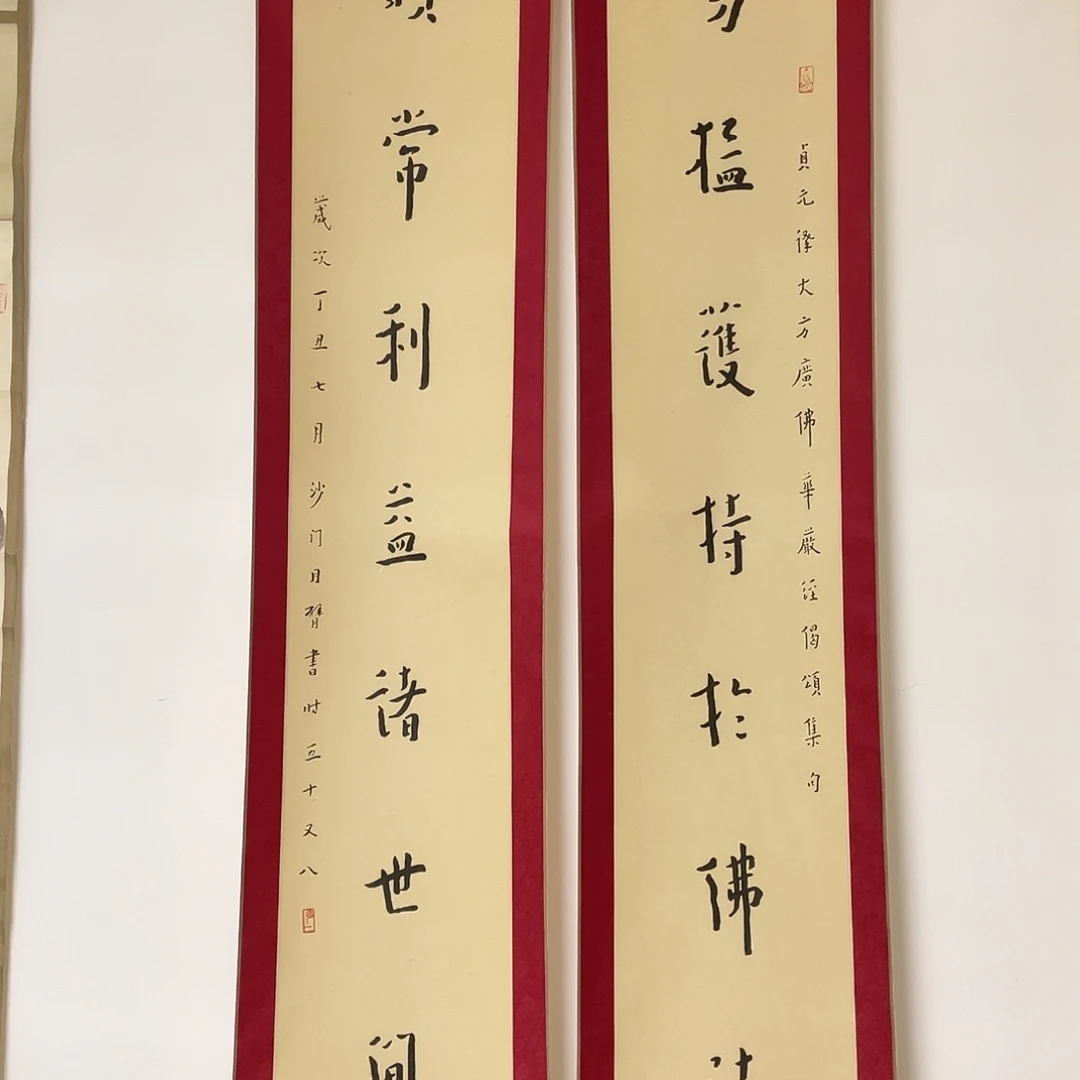 貞元譯大方廣佛華嚴經偈頌集句
猛護持於佛
常利益諸世間
歲次丁丑七月沙门月臂書时五十又八